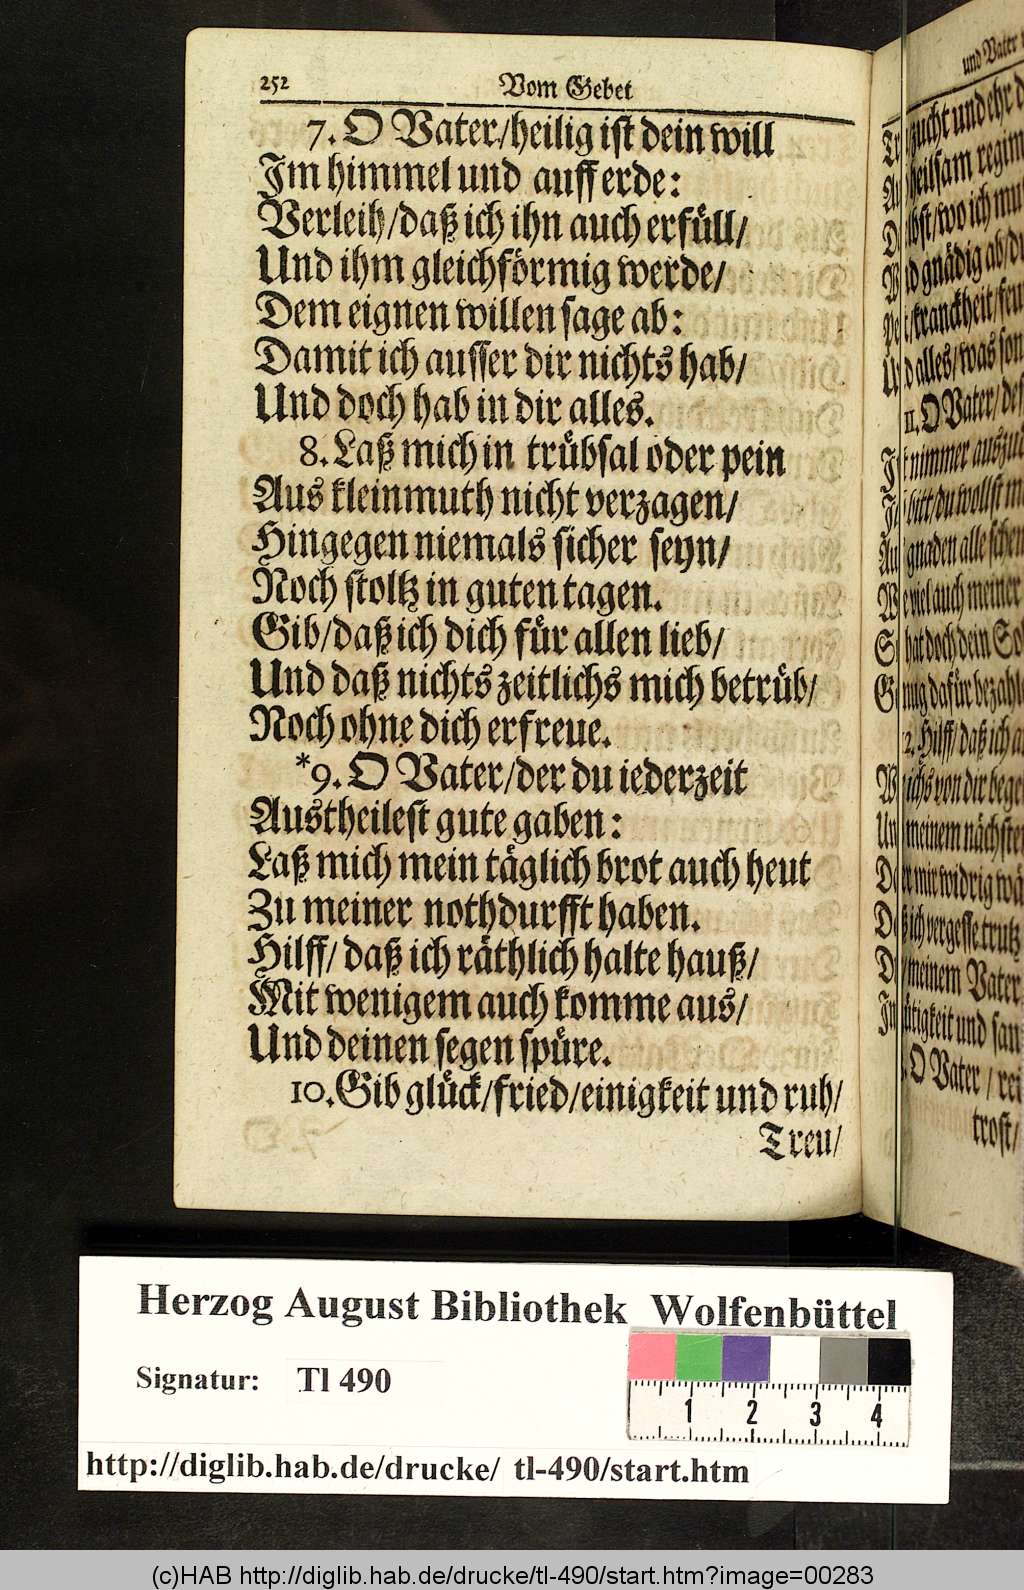 252 Vom Gebet
7. O Vater/heilig ist dein will
Im himmel und auff erde:
Verleih/daß ich ihn auch erfüll/
Und ihm gleichförmig werde/
Dem eignen willen sage ab:
Damit ich ausser dir nichts hab/
Und doch hab in dir alles.
8. Laß mich in trübsal oder pein
Aus kleinmuth nicht verzagen/
Hingegen niemals sicher seyn/
Noch stoltz in guten tagen.
Gib/daß ich dich für allen lieb/
Und daß nichts zeitlichs mich betrüb/
Noch ohne dich erfreue.
*9. O Vater/der du iederzeit
Austheilest gute gaben:
Laß mich mein täglich brot auch heut
Zu meiner nothdurfft haben.
Hilff/ daß ich räthlich halte hauß/
Mit wenigem auch komme aus/
Und deinen segen spüre.
10. Gib glück/fried/einigkeit und ruh/
Treu/
und Vater
zucht und ehr
heilsam regim
wo ich
gnädig ab/
kranckheit/
alles/was son
11. O Vater/
nimmer auszu
bitt/du wollst
gnaden alle
viel auch meiner
hat doch dein
gnug dafür bezahl
Hilff/daß ich
von dir bege
meinem nächste
mir widrig wä
ich vergesse trutz
meinem Vater
und san
O Vater / rei
trost/
Herzog August Bibliothek Wolfenbüttel
Signatur: Tl 490
1 2 3 4
http://diglib.hab.de/drucke/ tl-490/start.htm
(c)HAB http://diglib.hab.de/drucke/tl-490/start.htm?image=00283